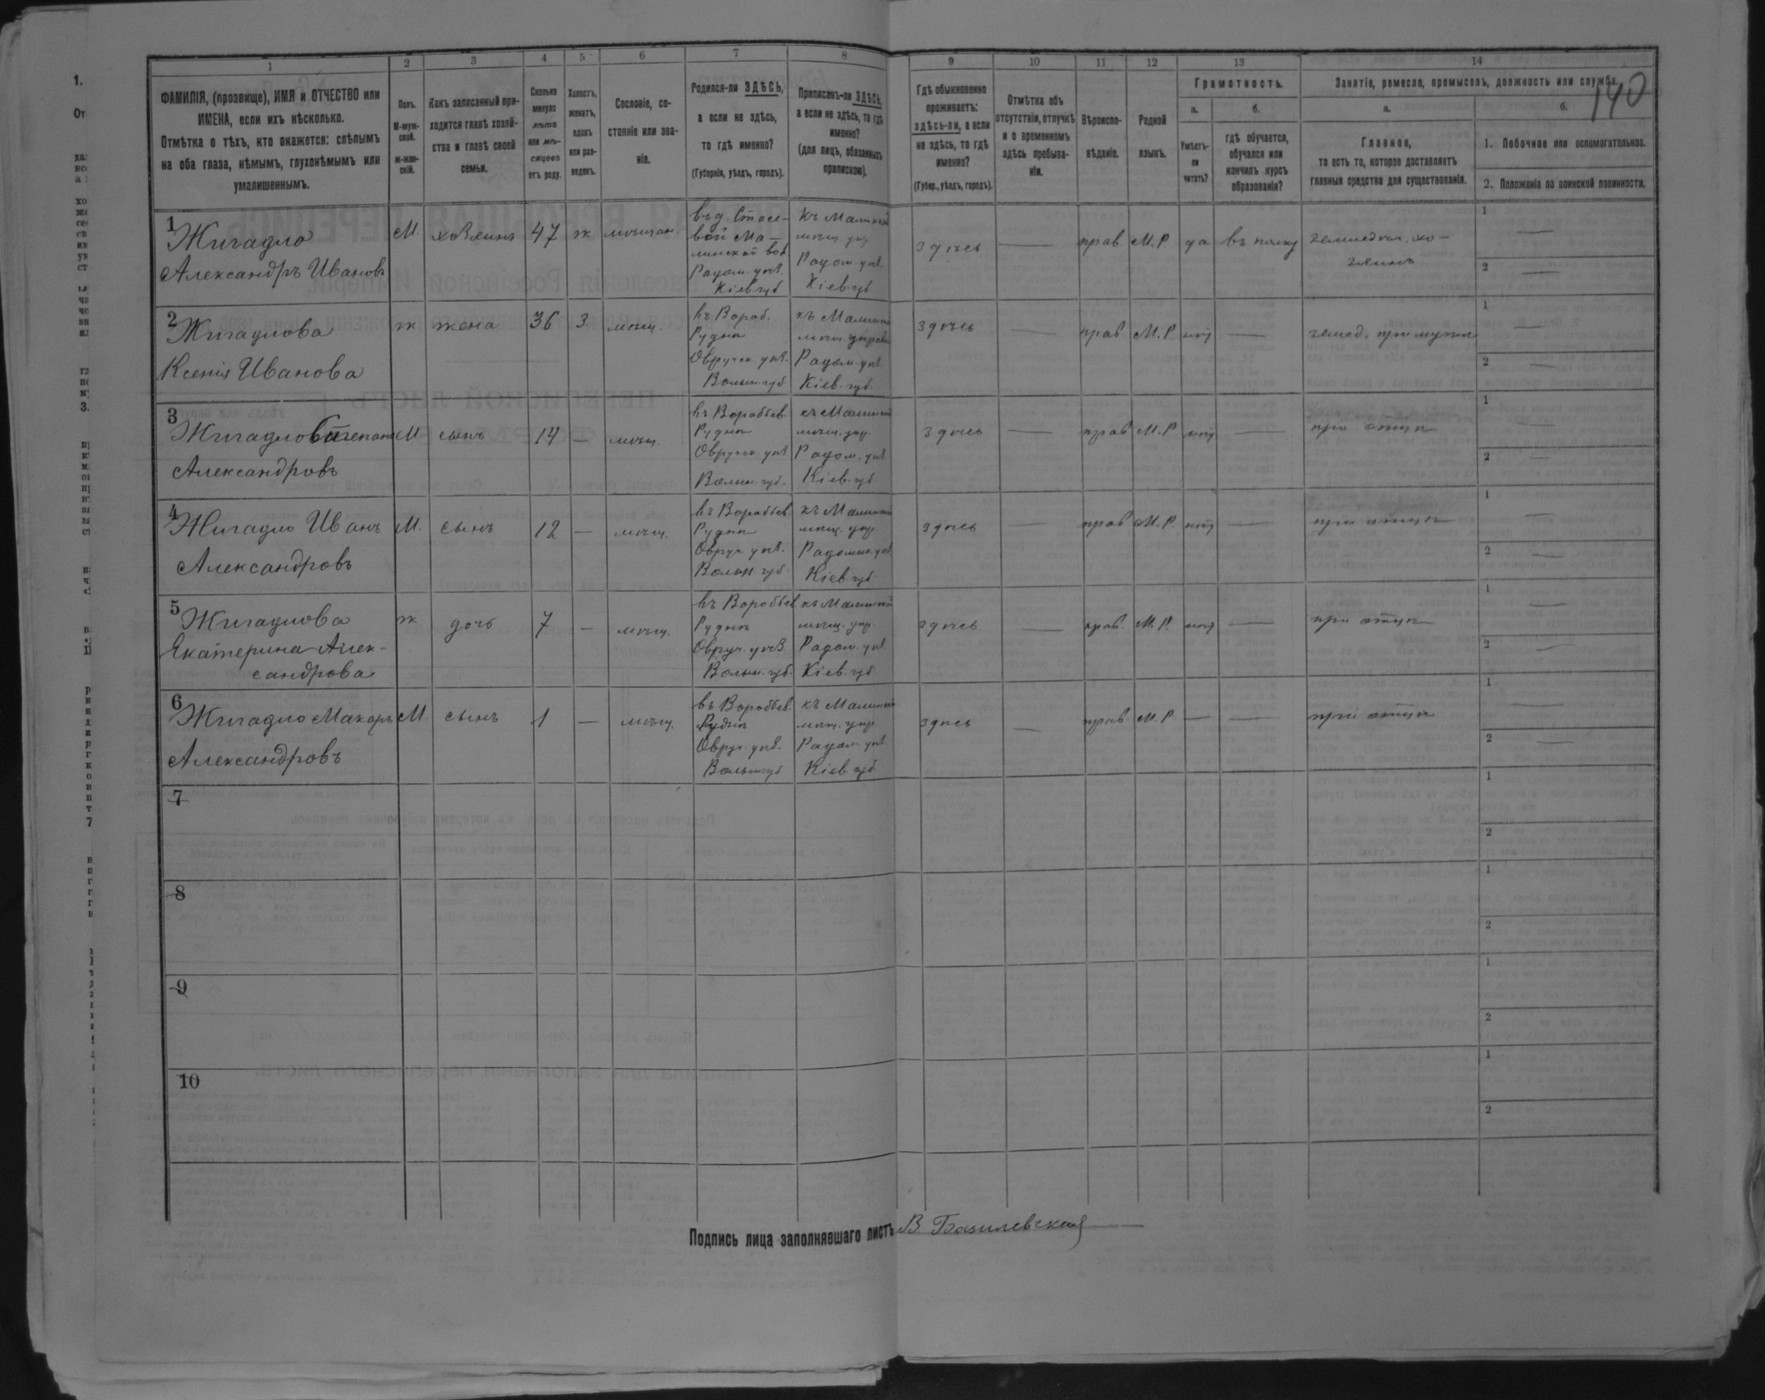 140
1 2 3 4 5 6 7 8 9 10 11 12 13 14
ФАМИЛІЯ, (прозвище), ИМЯ и ОТЧЕСТВО или
ИМЕНА, если ихъ нѣсколько.
Отмѣтка о тѣхъ, кто окажется: слѣпымъ
на оба глаза, нѣмымъ, глухонѣмымъ или
умалишеннымъ.
Полъ.
М-муж-
ской.
ж-жен-
скій.
Какъ записанный при-
ходится главѣ хозяй-
ства и главѣ своей
семьи.
Сколько
минуло
лѣтъ
или мѣ-
сяцевъ
отъ роду.
Холостъ,
женатъ,
вдовъ
или раз-
веденъ.
Сословіе, со-
стояніе или зва-
ніе.
Родился-ли ЗДѢСЬ,
а если не здѣсь,
то гдѣ именно?
(Губернія, уѣздъ, городъ).
Приписанъ-ли ЗДѢСЬ,
а если не здѣсь, то гдѣ
именно?
(для лицъ, обязанныхъ
припиской).
Гдѣ обыкновенно
проживаетъ:
здѣсь-ли, а если
не здѣсь, то гдѣ
именно?
(Губер., уѣздъ, городъ).
Отмѣтка объ
отсутствіи, отлучкѣ
и о временномъ
здѣсь пребыва-
ніи.
Вѣроиспо-
вѣданіе.
Родной
языкъ.
Грамотность.
а.
Умѣетъ-
ли
читать?
б.
гдѣ обучается,
обучался или
кончилъ курсъ
образованія?
Занятіе, ремесло, промыселъ, должность или служба.
а.
Главное,
то есть то, которое доставляетъ
главныя средства для существованія.
б.
1. Побочное или вспомогательное.
2. Положеніе по воинской повинности.
1 Жигадло
Александръ Ивановъ
М хозяинъ 47 ж мѣщан.
въ д.
Радом. уѣз.
Кіев губ
къ Малинской
мѣщ. упр
Радом. уѣз.
Кіев губ
здѣсь — прав М.Р да въ полку
земледѣл. хо-
зяинъ
1 —
2 —
2 Жигадлова
Ксенія Иванова
ж жена 36 З. мѣщ.
въ Вороб.
Рудня
Овруч. уѣз.
Волын. губ
къ Малинской
мѣщ. управ
Радом. уѣз.
Кіев. губ.
здѣсь — прав М.Р нѣтъ —
земед. при мужѣ
1 —
2 —
3 Жигадло Степанъ
Александровъ
М сынъ 14 — мѣщ.
въ Воробьев
Рудня
Овручск уѣз
Волын. губ.
къ Малинской
мѣщ. упр.
Радом. уѣз
Кіев. губ
здѣсь — прав М.Р нѣтъ —
при отцѣ
1 —
2 —
4 Жигадло Иванъ
Александровъ
М. сынъ 12 — мѣщ.
въ Воробьев
Рудня
Овруч уѣз.
Волын губ
къ Малинской
мѣщ. упр.
Радомыс. уѣз
Кіев губ
здѣсь — прав М.Р. нѣтъ —
при отцѣ
1 —
2 —
5 Жигадлова
Екатерина Алек-
сандрова
ж дочь 7 — мѣщ.
въ Воробьев
Рудня
Овруч. уѣз.
Волын. губ.
къ Малинской
мѣщ. упр.
Радом. уѣз
Кіев. губ
здѣсь — прав. М.Р. нѣтъ —
при отцѣ
1 —
2 —
6 Жигадло Макаръ
Александровъ
М сынъ 1 — мѣщ.
въ Воробьев
Рудня
Овруч. уѣз.
Волын губ
къ Малинской
мѣщ. упр.
Радом. уѣз
Кіев губ
здѣсь — прав М.Р — —
при отцѣ
1 —
2 —
7
1
2
8
1
2
9
1
2
10
1
2
Подпись лица заполнявшаго листъ В Базилевская